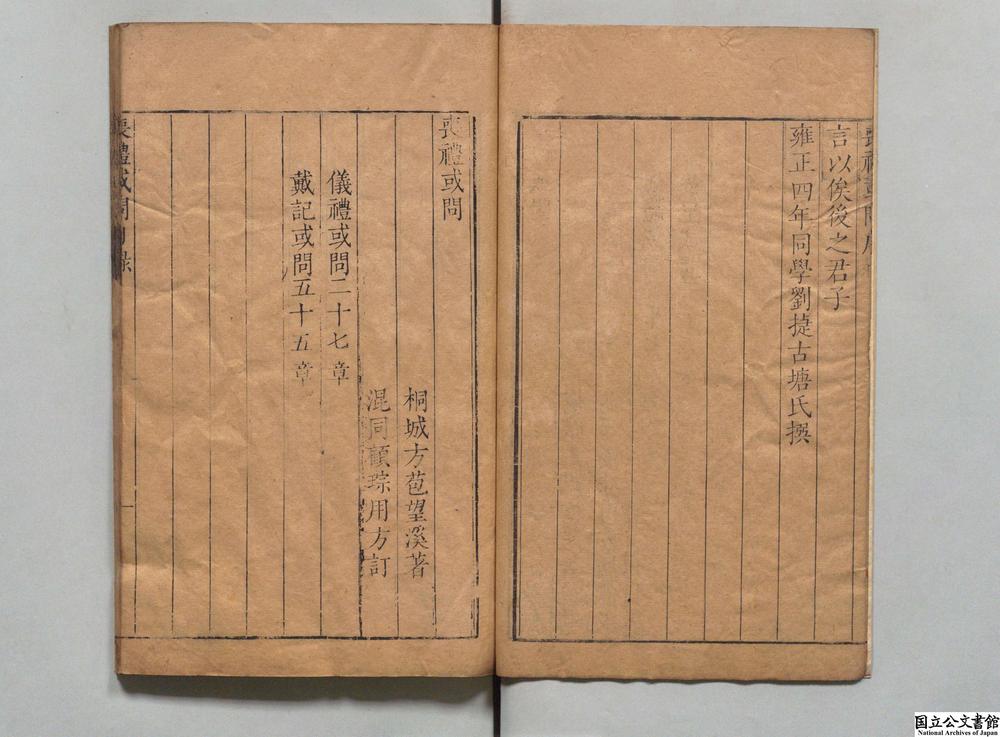 言以俟後之君子
雍正四年同學劉捷古塘氏撰
喪禮或問
桐城方苞望溪著
混同顧琮用方訂
儀禮或問二十七章
戴記或問五十五章
喪禮或問目錄
一
国立公文書館
National Archives of Japan